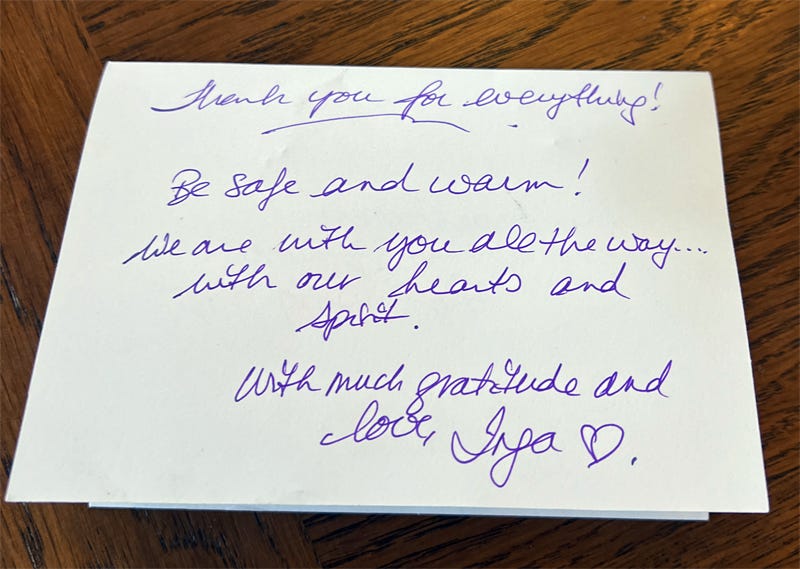 Thank you for everything!
Be safe and warm!
We are with you all the way...
with our hearts and
spirit.
With much gratitude and
love, Inga ♡.